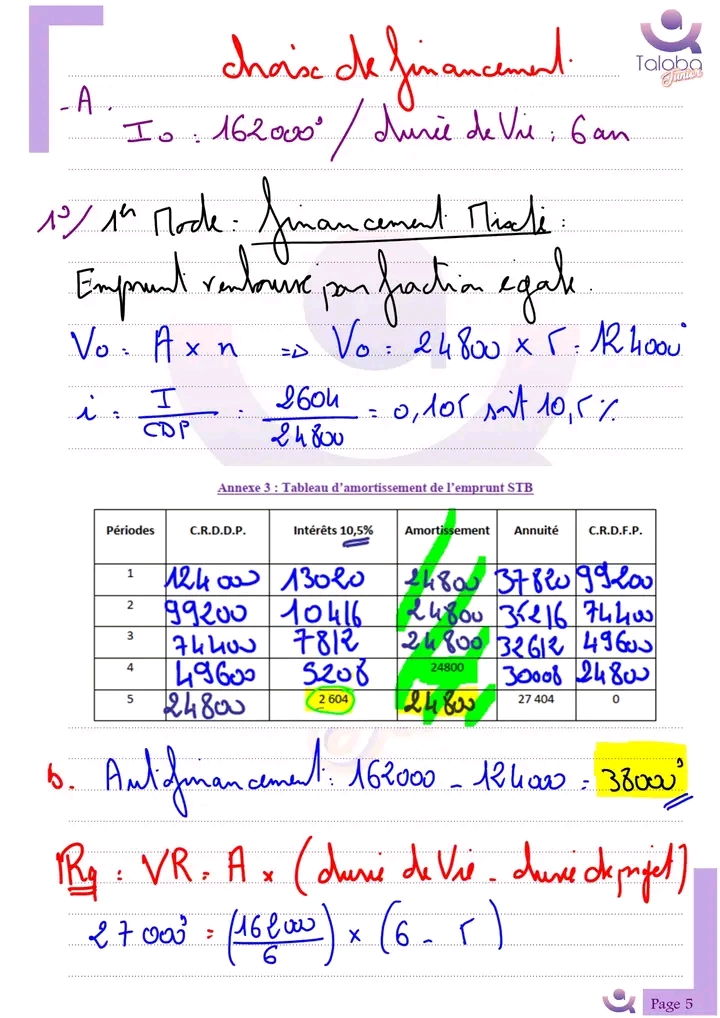 choix de financement.
Talaba
Junior
- A.
I0 : 162000ᵈ / durée de Vie : 6 an
1°/ 1er Mode : financement Mixte :
Emprunt rembourse par fraction egale.
V0 = A x n => V0 = 24800 x 5 = 124000ᵈ
i = I / CDP = 2604 / 24800 = 0,105 soit 10,5 %
Annexe 3 : Tableau d'amortissement de l'emprunt STB
Périodes C.R.D.D.P. Intérêts 10,5% Amortissement Annuité C.R.D.F.P.
1 124000 13020 24800 37820 99200
2 99200 10416 24800 35216 74400
3 74400 7812 24800 32612 49600
4 49600 5208 24800 30008 24800
5 24800 2 604 24800 27 404 0
b. Autofinancement : 162000 - 124000 = 38000ᵈ
Rq : VR = A x (durée de Vie - durée de projet)
27000ᵈ = (162000 / 6) x (6 - 5)
Page 5